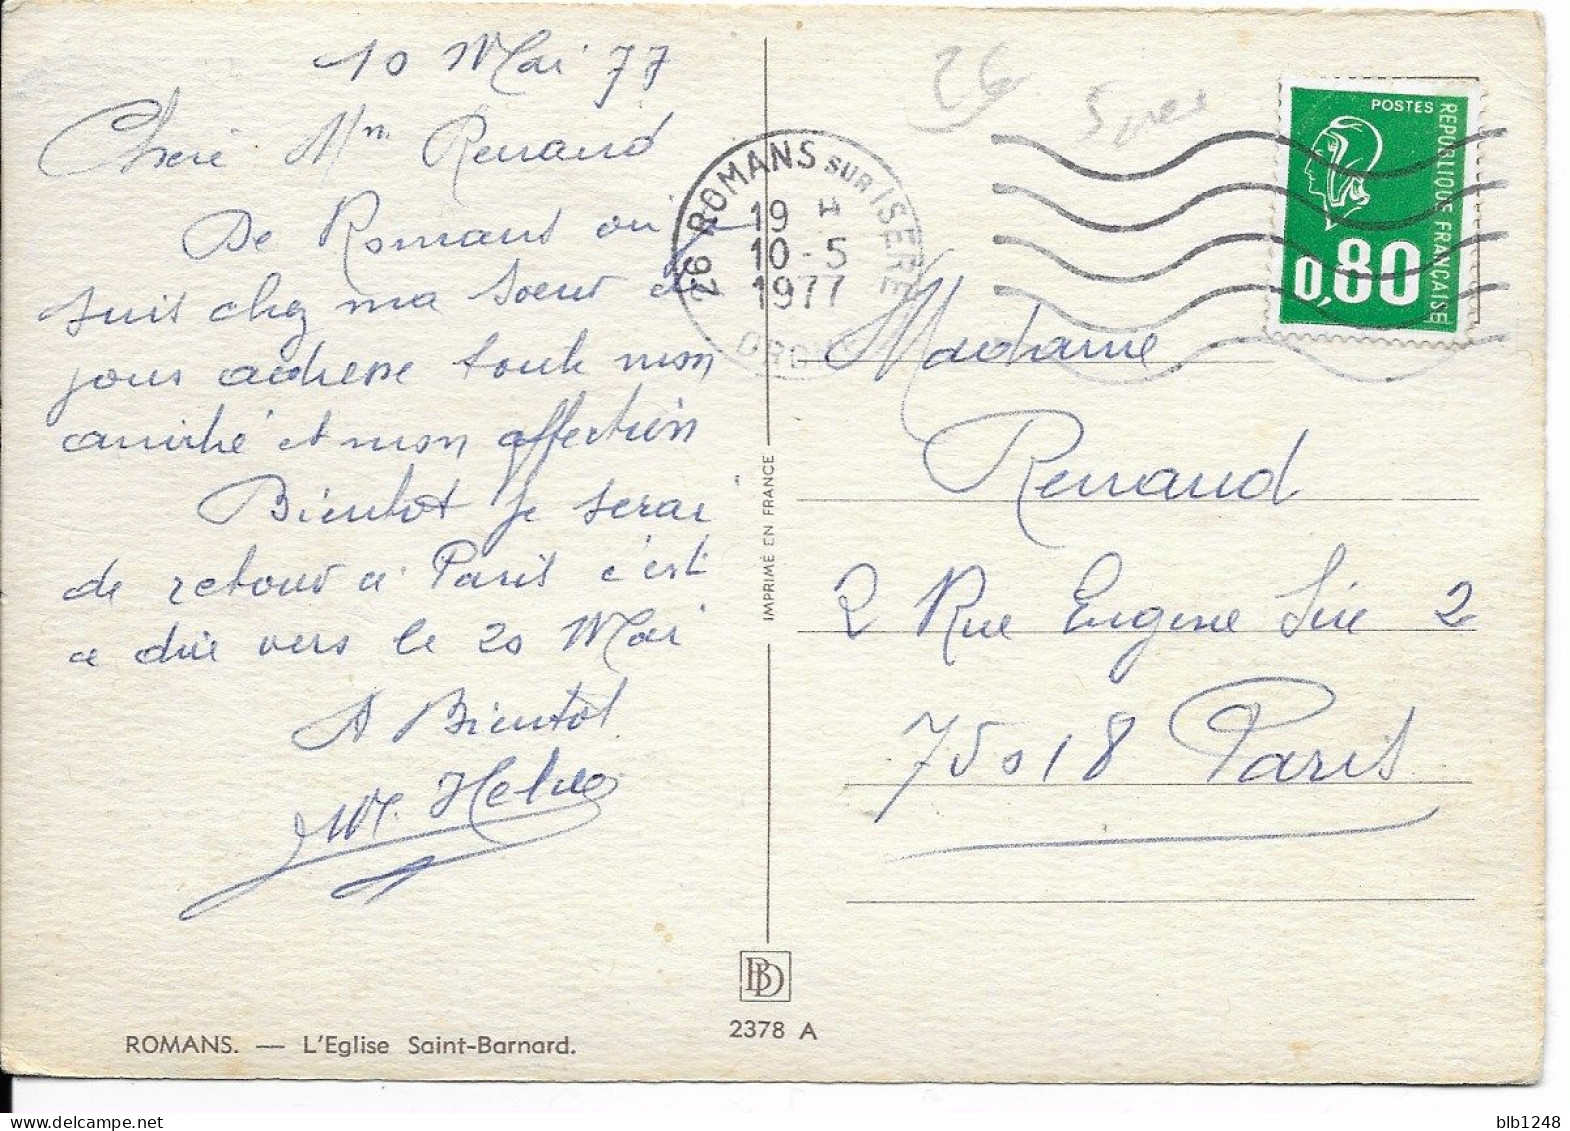 10 Mai 77
Chere Mm Renaud
De Romans ou je
suis chez ma Soeur de
jour adresse toute mon
amitié et mon affection
Bientot Je serai
de retour a Paris c'est
a dire vers le 20 Mai
A Bientôt
M.
26 ROMANS SUR ISERE
19 H
10-5
1977
DROME
26
POSTES
REPUBLIQUE FRANCAISE
0,80
Madame
Renaud
2 Rue Eugene Sue 2
75018 Paris
IMPRIMÉ EN FRANCE
BD
2378 A
ROMANS. — L'Eglise Saint-Barnard.
blb1248